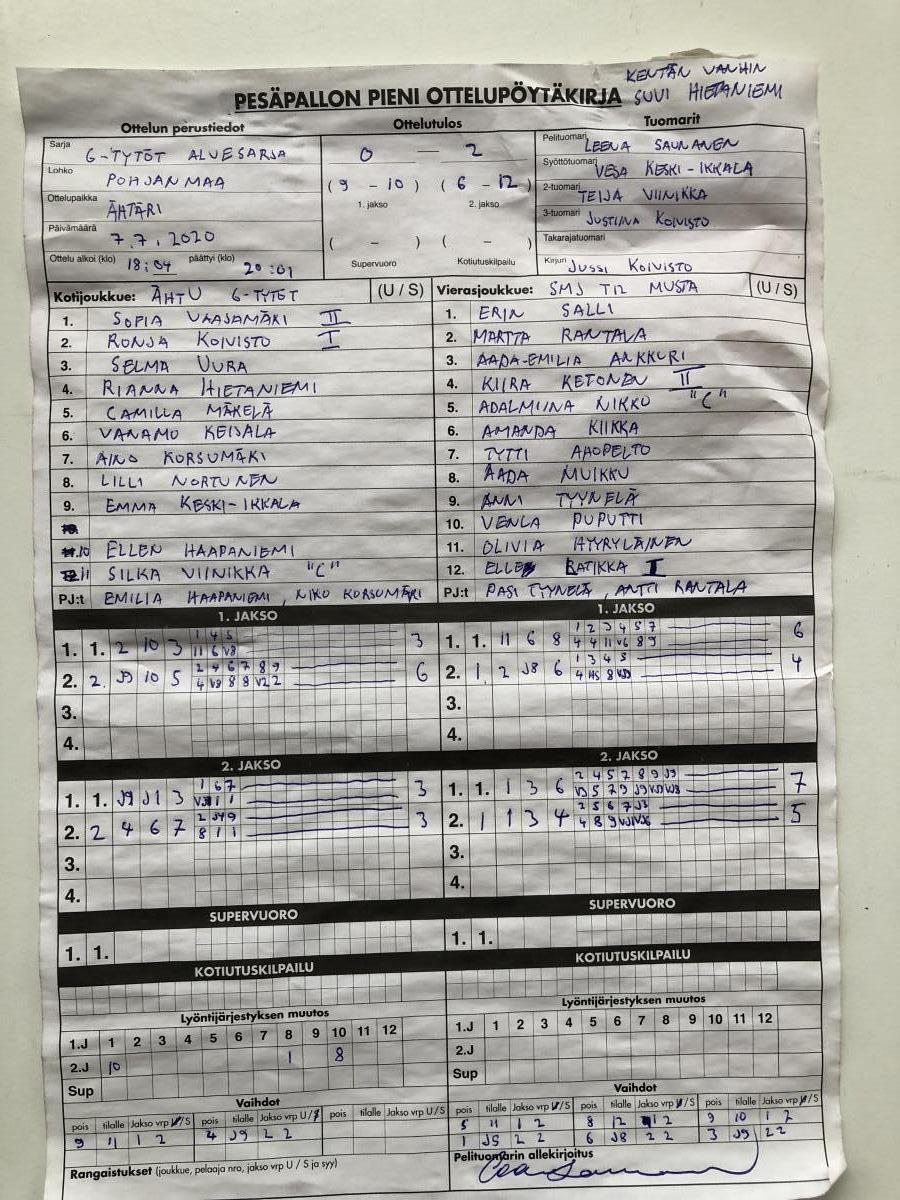 KENTÄN VANHIN
PESÄPALLON PIENI OTTELUPÖYTÄKIRJA SUVI HIETANIEMI
Ottelun perustiedot
Sarja G-TYTÖT ALUESARJA
Lohko POHJANMAA
Ottelupaikka ÄHTÄRI
Päivämäärä 7.7.2020
Ottelu alkoi (klo) 18:04 päättyi (klo) 20:01
Ottelutulos
0 — 2
(9 - 10) (6 - 12)
1. jakso 2. jakso
( - ) ( - )
Supervuoro Kotiutuskilpailu
Tuomarit
Pelituomari LEENA SAUNANEN
Syöttötuomari VESA KESKI-IKKALA
2-tuomari TEIJA VIINIKKA
3-tuomari JUSTIINA KOIVISTO
Takarajatuomari
Kirjuri JUSSI KOIVISTO
Kotijoukkue: ÄHTU G-TYTÖT (U / S)
1. SOFIA VAASAMÄKI II
2. RONJA KOIVISTO I
3. SELMA UURA
4. RIANNA HIETANIEMI
5. CAMILLA MÄKELÄ
6. VANAMO KEISALA
7. AINO KORSUMÄKI
8. LILLI NORTUNEN
9. EMMA KESKI-IKKALA
10 ELLEN HAAPANIEMI
11 SILKA VIINIKKA "C"
PJ:t EMILIA HAAPANIEMI, NIKO KORSUMÄKI
Vierasjoukkue: SMJ T12 MUSTA (U / S)
1. ERIN SALLI
2. MARTTA RANTALA
3. AADA-EMILIA ANKKURI
4. KIIRA KETONEN II
5. ADALMIINA NIKKO "C"
6. AMANDA KIIKKA
7. TYTTI AHOPELTO
8. AADA MUIKKU
9. ANNI TYYNELÄ
10. VENLA PUPUTTI
11. OLIVIA HYYRYLÄINEN
12. RATIKKA I
PJ:t PASI TYYNELÄ, ANTTI RANTALA
1. JAKSO
1. 1. 2 10 3 1 4 5 3
11 6 V8
2. 2. J9 10 5 2 4 6 7 8 9 6
4 V8 8 8 V2 2
3.
4.
1. JAKSO
1. 1. 11 6 8 1 2 3 4 5 7 6
4 4 11 V6 8 9
2. 1. 2 J8 6 1 3 4 5 4
3.
4.
2. JAKSO
1. 1. J9 J1 3 1 6 7 3
2. 2 4 6 7 3
8 1 1
3.
4.
2. JAKSO
1. 1. 1 3 6 2 4 5 7 8 9 J9 7
2. 1 1 3 4 2 5 6 7 J3 5
3.
4.
SUPERVUORO
1. 1.
SUPERVUORO
1. 1.
KOTIUTUSKILPAILU
KOTIUTUSKILPAILU
Lyöntijärjestyksen muutos
1.J 1 2 3 4 5 6 7 8 9 10 11 12
2.J 10 1 8
Sup
Lyöntijärjestyksen muutos
1.J 1 2 3 4 5 6 7 8 9 10 11 12
2.J
Sup
Vaihdot
pois tilalle Jakso vrp U/S pois tilalle Jakso vrp U/S pois tilalle Jakso vrp U/S
9 11 1 2 4 J9 2 2
Vaihdot
pois tilalle Jakso vrp U/S pois tilalle Jakso vrp U/S pois tilalle Jakso vrp U/S
5 11 1 2 8 12 1 2 9 10 1 2
1 J5 2 2 6 J8 2 2 3 J9 2 2
Rangaistukset (joukkue, pelaaja nro, jakso vrp U / S ja syy)
Pelituomarin allekirjoitus